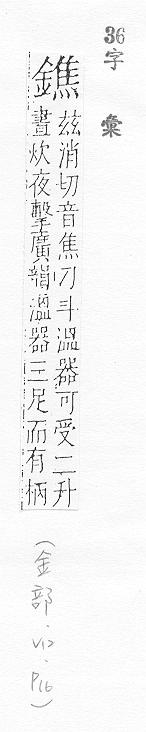 36字彙
鐎
茲消切音焦刁斗溫器可受二升
晝炊夜擊廣韻溫器三足而有柄
(金部.V12.P16)